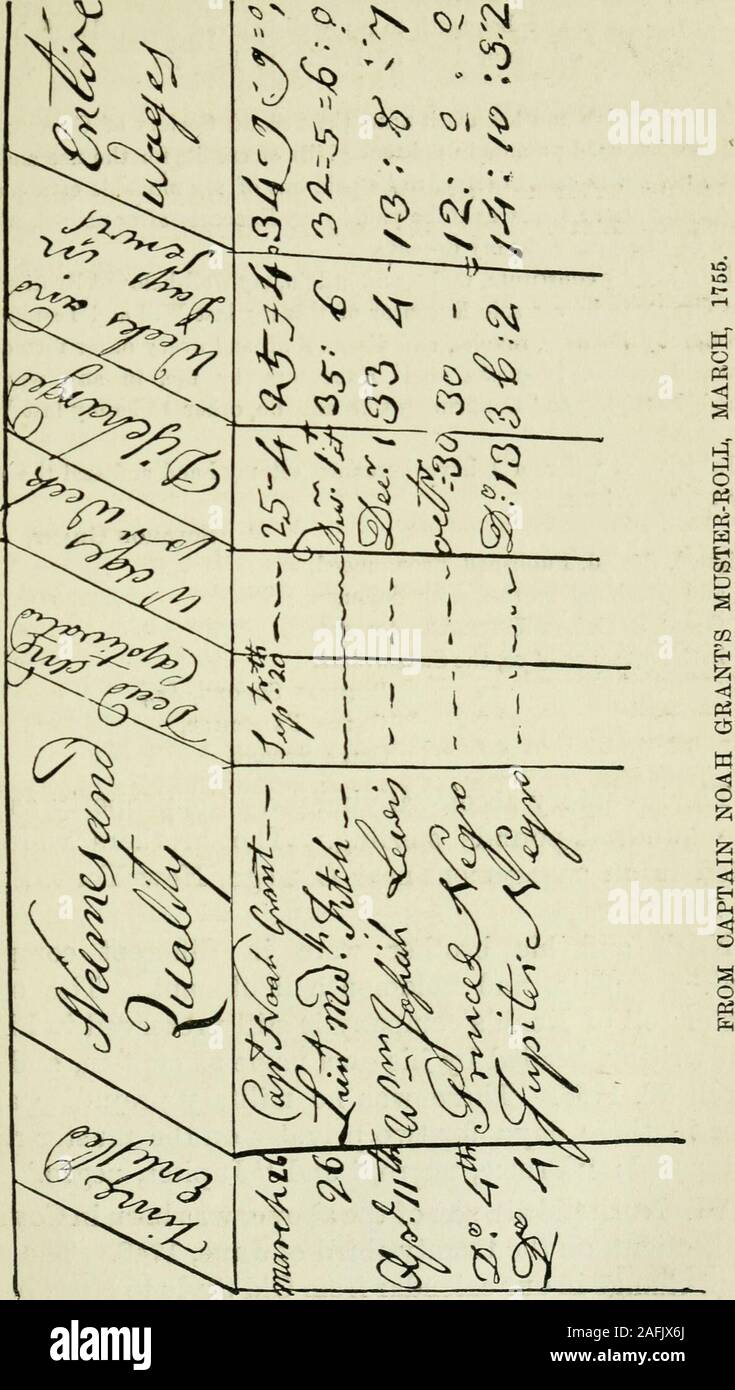 Time Enlysted | Neames and Quality | Dead and Captivated | Wages pr Week | Discharged | Weeks and Days in Servis | Entire Wages
march 26 Capt Noah Grant -- Sept 20th --- 25-4 25=4 34-9:9=0
26 Lieut Med.h Fitch -- ---- ---- Decr: 1st 35: 6 32=5=6:0
Apr. 11th Wm Josiah Lewis -- -- -- Decr. 1 33 4 13: 8:7
Do 4th Prince Negro -- --- octr 30 30 - 12: 0.0
Do 4 Jupiter Negro -- --- Do: 13 36:2 14: 10:3 2
FROM CAPTAIN NOAH GRANT'S MUSTER-ROLL, MARCH, 1755.
alamy
alamy
Image ID: 2AFJX6J
www.alamy.com